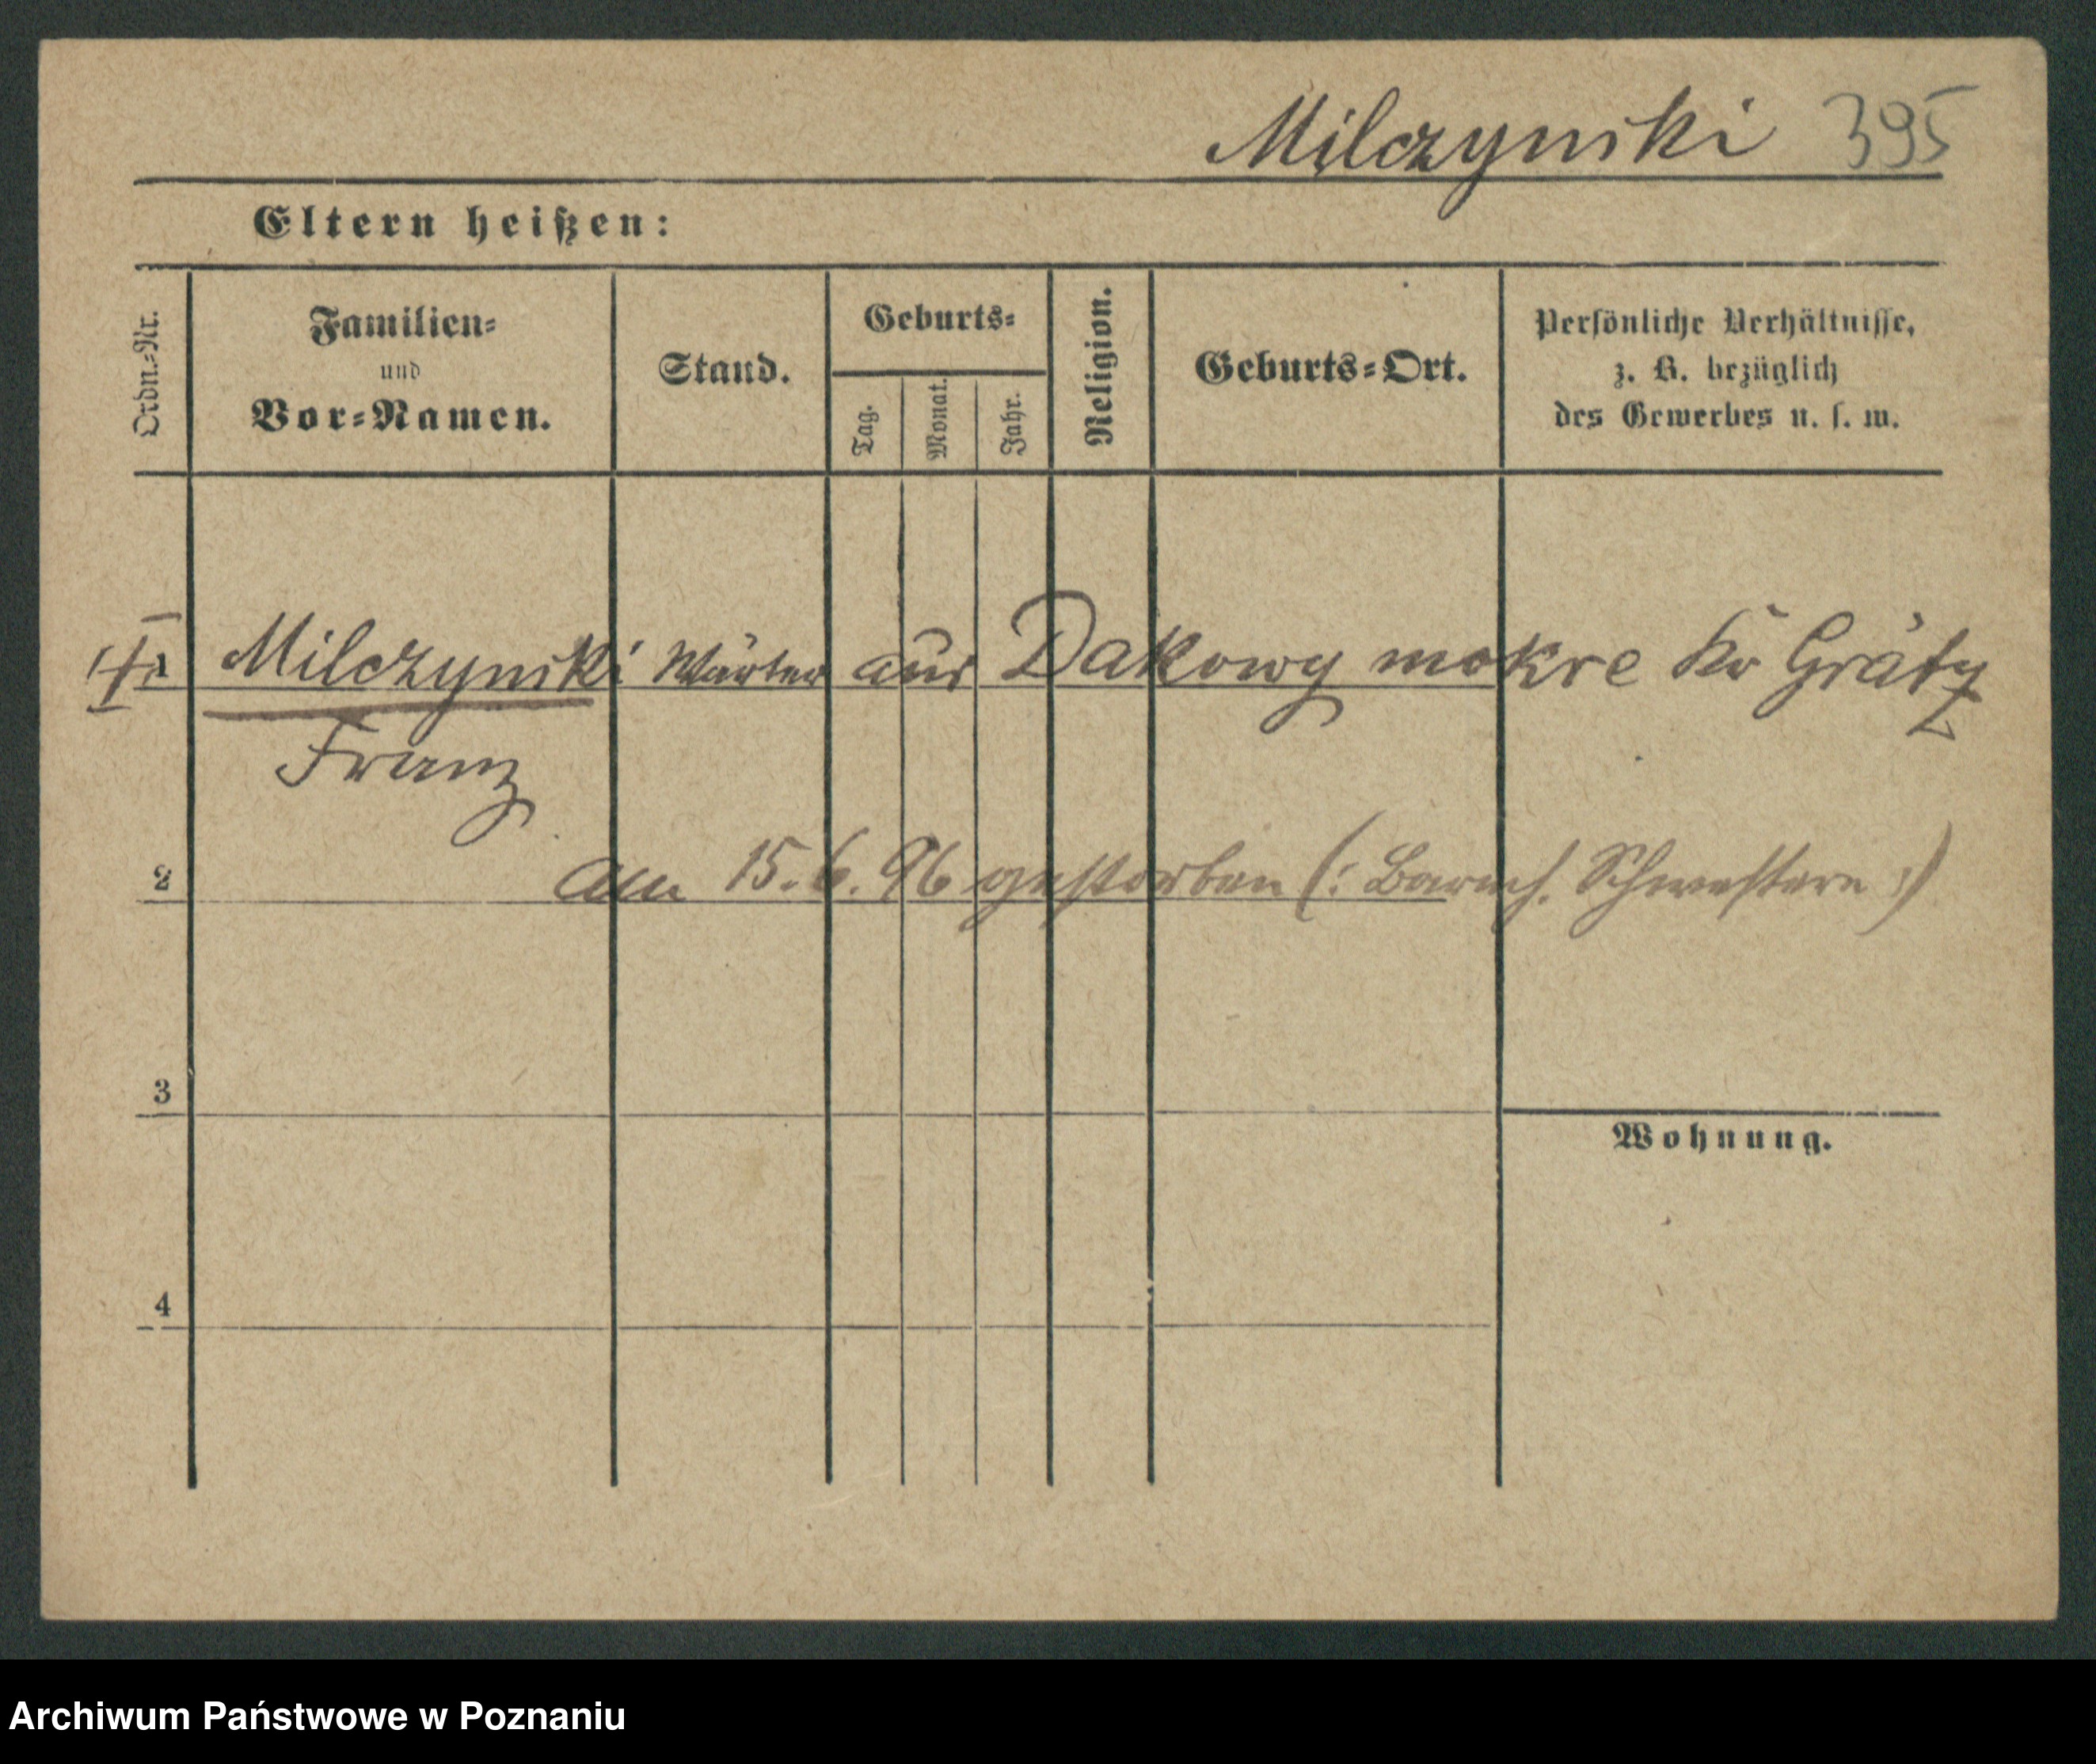 Milczynski 395
Eltern heißen:
Ordn.=Nr.
Familien=
und
Vor=Namen.
Stand.
Geburts=
Tag.
Monat.
Jahr.
Religion.
Geburts=Ort.
Persönliche Verhältnisse,
z. B. bezüglich
des Gewerbes u. s. w.
1 Milczynski Wärter aus Dakowy mokre Kr Grätz
Franz
2 am 15.6.96 gestorben (: Barmh. Schwestern :)
3
Wohnung.
4
Archiwum Państwowe w Poznaniu